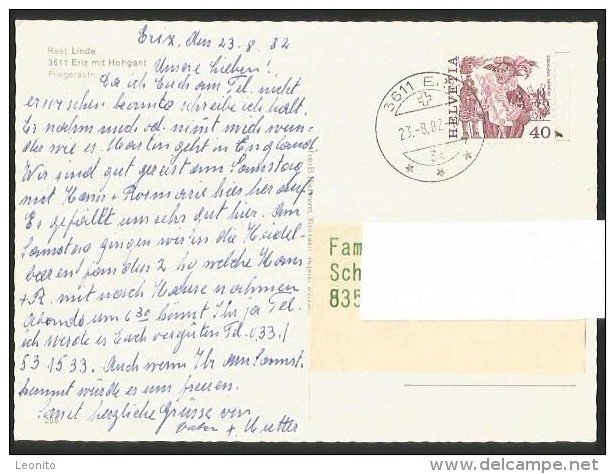 Eriz, den 23.8.82
Rest. Linde
3611 Eriz mit Hohgant
Fliegeraufn.
Unsere Lieben!
Da ich Euch am Tel. nicht
erwischen konnte schreibe ich halt.
Es nahm mich od. nimt mich wun-
der wie es Martin geht in England
Wir sind gut gereist am Samstag
mit Hans + Rosmarie hier herauf
Es gefällt uns sehr gut hier. Am
Samstag gingen wir in die Heidel-
beeren fanden 2 kg welche Hans
+ R. mit nach Hause nahmen
Abends um 6 30 könnt Ihr ja Tel.
ich werde es Euch vergüten Tel. 033/
53 1533. Auch wenn Ihr am Samst.
kommt würde es uns freuen.
Seid herzliche Grüsse von
Vater + Mutter
3611
23.-8.82
HELVETIA
40
Fam
Sch
835
Leonito